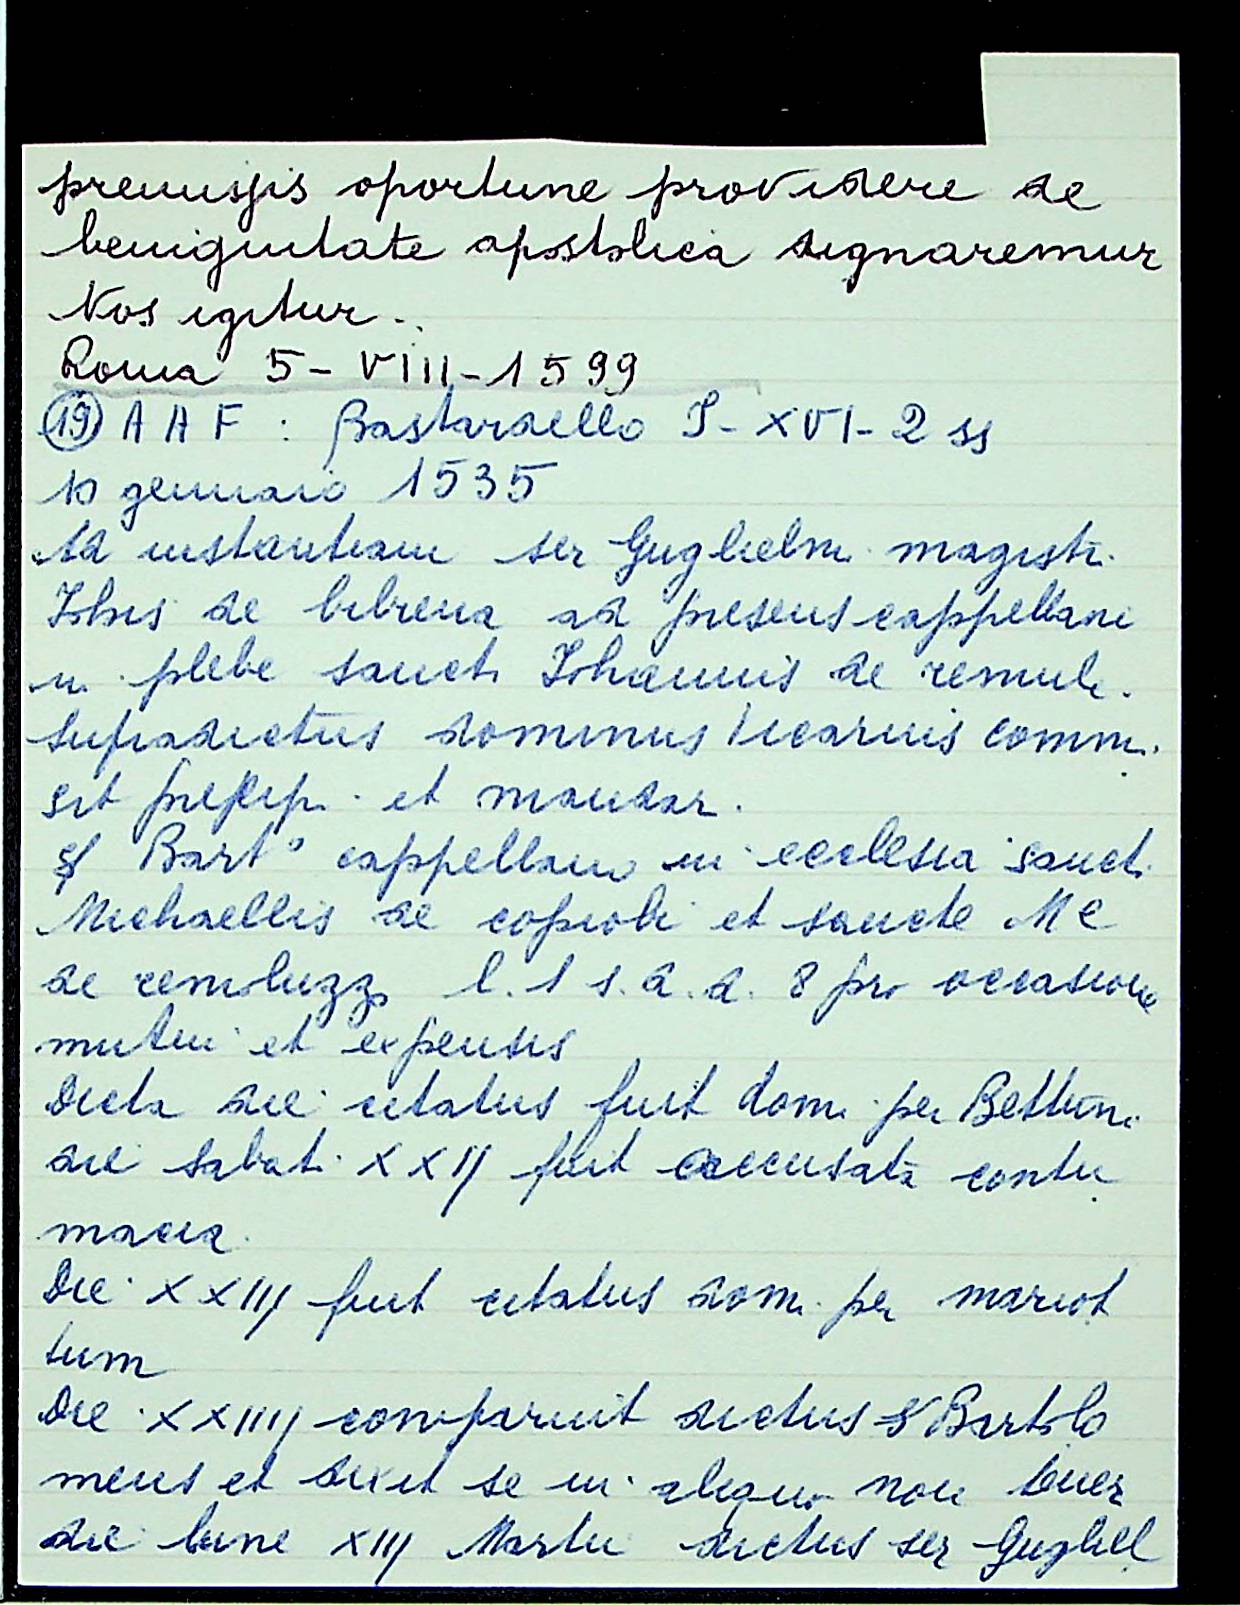 premissis oportune providere de
benignitate apostolica dignaremur
Nos igitur..
Roma 5-VIII-1599
(19) A A F : Bastardello I-XVI-2 ss
10 gennaio 1535
Ad instantiam ser Guglielmi magistri
Iohis de bibiena ad presens cappellani
in plebe sancti Iohannis de remule.
Supradictus dominus Vicarius commi
sit et mandar.
S Bart° cappellano in ecclesia sancti
Michaellis de et sancte Me
de remoluzzo l. 1 s. d. d. 8 pro occasione
mutui et expensis
Dicta die citatus fuit domi per Bettini
die sabati XXIJ fuit accusata contu
macia.
Die XXIIJ fuit citatus domi per mariot
tum
Die XXIIIJ comparuit dictus S Bartolo
meus et dixit se in aliquo non tener
die lune XIIJ Martii dictus ser Gugliel